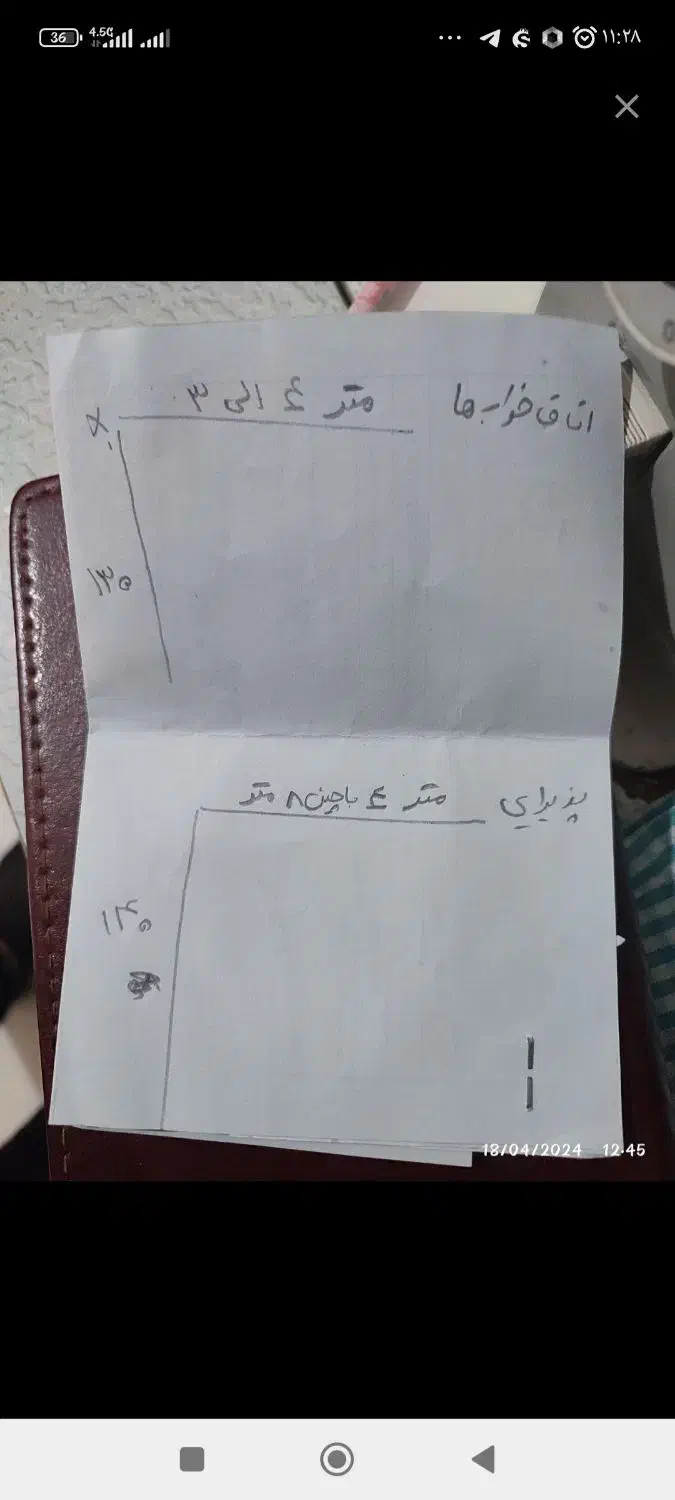 36 4.5G ۱۱:۲۸
اتاق خواب ها متر ٤ الی ۳
۱۳۰
پذیرایی متر ٤ باچین ۸ متر
۱۴۰
18/04/2024 12:45